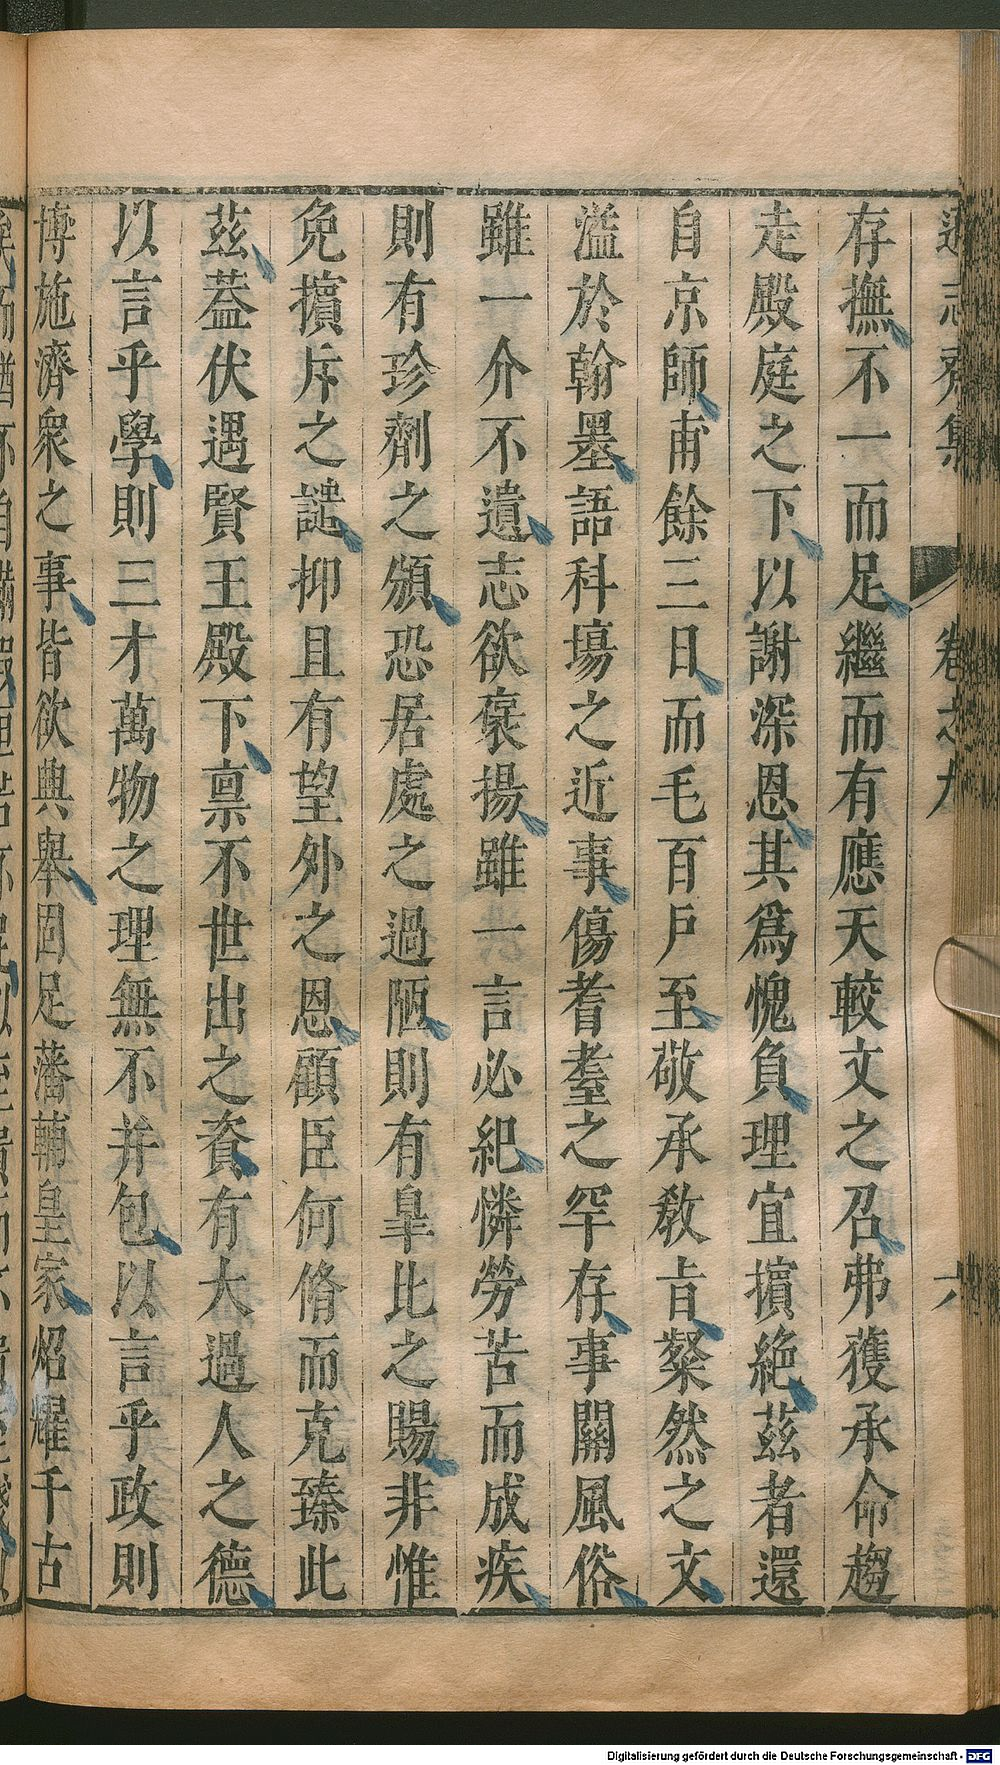 遜志齋集 卷之九 六
存撫不一而足繼而有應天較文之召弗獲承命趨
走殿庭之下以謝深恩其爲愧負理宜擯絶茲者還
自京師甫餘三日而毛百戶至敬承教㫖粲然之文
溢於翰墨語科場之近事傷耆耋之罕存事關風俗
雖一介不遺志欲褒揚雖一言必紀憐勞苦而成疾
則有珍劑之頒恐居處之過陋則有皐比之賜非惟
免擯斥之譴抑且有望外之恩顧臣何脩而克臻此
茲葢伏遇賢王殿下禀不世出之資有大過人之德
以言乎學則三才萬物之理無不并包以言乎政則
博施濟衆之事皆欲興舉固足藩輔皇家焰耀千古
Digitalisierung gefördert durch die Deutsche Forschungsgemeinschaft - DFG